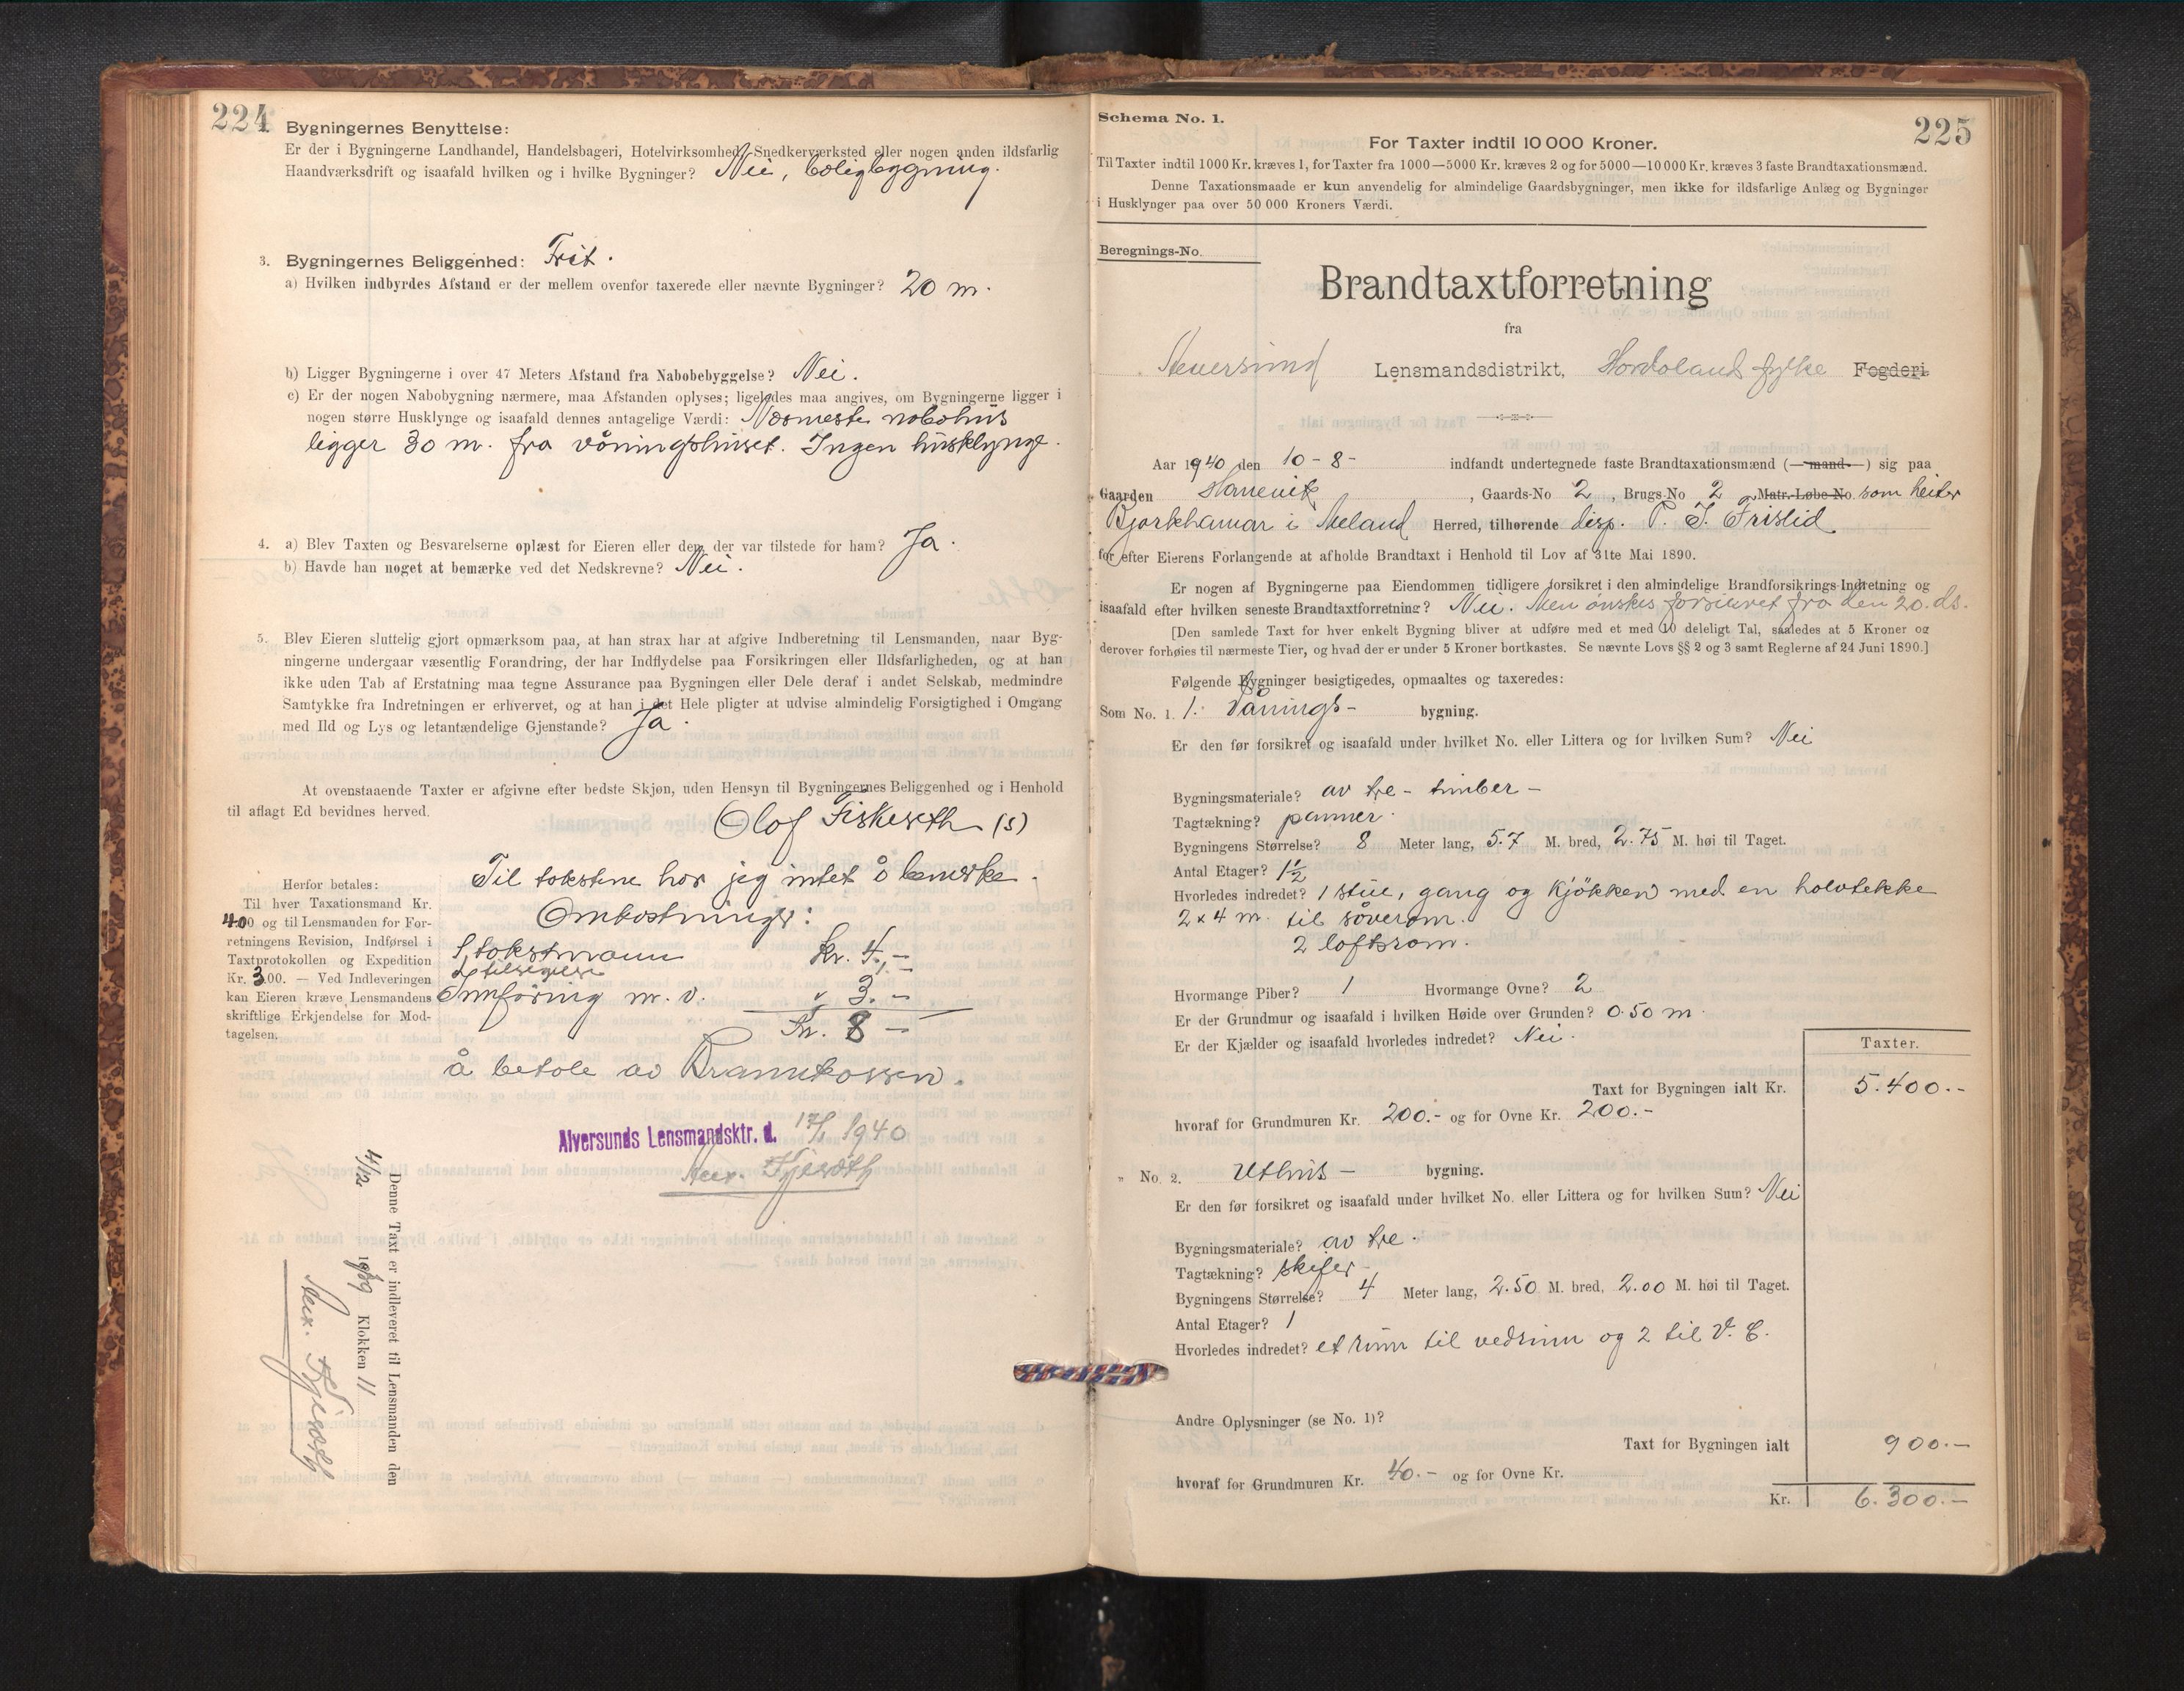 224
Bygningernes Benyttelse:
Er der i Bygningerne Landhandel, Handelsbageri, Hotelvirksomhed, Snedkerværksted eller nogen anden ildsfarlig
Haandværksdrift og isaafald hvilken og i hvilke Bygninger? Nei, boligbygning.
3. Bygningernes Beliggenhed: Frit.
a) Hvilken indbyrdes Afstand er der mellem ovenfor taxerede eller nævnte Bygninger? 20 m.
b) Ligger Bygningerne i over 47 Meters Afstand fra Nabobebyggelse? Nei.
c) Er der nogen Nabobygning nærmere, maa Afstanden oplyses; ligeledes maa angives, om Bygningerne ligger i
nogen større Husklynge og isaafald dennes antagelige Værdi: Næsmeste nabohus
ligger 30 m. fra våningshuset. Ingen husklynge.
4. a) Blev Taxten og Besvarelserne oplæst for Eieren eller den, der var tilstede for ham? Ja.
b) Havde han noget at bemærke ved det Nedskrevne? Nei.
5. Blev Eieren sluttelig gjort opmærksom paa, at han strax har at afgive Indberetning til Lensmanden, naar Byg-
ningerne undergaar væsentlig Forandring, der har Indflydelse paa Forsikringen eller Ildsfarligheden, og at han
ikke uden Tab af Erstatning maa tegne Assurance paa Bygningen eller Dele deraf i andet Selskab, medmindre
Samtykke fra Indretningen er erhvervet, og at han i det Hele pligter at udvise almindelig Forsigtighed i Omgang
med Ild og Lys og letantændelige Gjenstande? Ja.
At ovenstaaende Taxter er afgivne efter bedste Skjøn, uden Hensyn til Bygningernes Beliggenhed og i Henhold
til aflagt Ed bevidnes herved.
Olaf Fiskeseth (s)
Til takstene har jeg intet å bemerke.
Omkostninger:
1 takstmann kr. 4,-
1 tilsigelse 1.-
Innføring m. v. " 3.-
Kr. 8 -
å betale av Brannkassen.
Herfor betales:
Til hver Taxationsmand Kr.
4.00 og til Lensmanden for For-
retningens Revision, Indførsel i
Taxtprotokollen og Expedition
Kr. 3.00. — Ved Indleveringen
kan Eieren kræve Lensmandens
skriftlige Erkjendelse for Mod-
tagelsen.
Alversunds Lensmandsktr. d. 17/1 1940
Denne Taxt er indleveret til Lensmanden den
4/12 1939 Klokken 11
225
Schema No. 1.
For Taxter indtil 10 000 Kroner.
Til Taxter indtil 1000 Kr. kræves 1, for Taxter fra 1000—5000 Kr. kræves 2 og for 5000—10 000 Kr. kræves 3 faste Brandtaxationsmænd.
Denne Taxationsmaade er kun anvendelig for almindelige Gaardsbygninger, men ikke for ildsfarlige Anlæg og Bygninger
i Husklynger paa over 50 000 Kroners Værdi.
Beregnings-No.
Brandtaxtforretning
fra
Alversund Lensmandsdistrikt, Hordaland fylke Fogderi
Aar 1940 den 10-8- indfandt undertegnede faste Brandtaxationsmænd (—mand—) sig paa
Gaarden Hanevik, Gaards-No 2, Brugs-No 2 Matr.-Løbe-No. som heiter
Bjørkhamar i Meland Herred, tilhørende disp. P. J. Frislid
for efter Eierens Forlangende at afholde Brandtaxt i Henhold til Lov af 31te Mai 1890.
Er nogen af Bygningerne paa Eiendommen tidligere forsikret i den almindelige Brandforsikrings-Indretning og
isaafald efter hvilken seneste Brandtaxtforretning? Nei. Men ønskes forsikret fra den 20. ds.
[Den samlede Taxt for hver enkelt Bygning bliver at udføre med et med 10 deleligt Tal, saaledes at 5 Kroner og
derover forhøies til nærmeste Tier, og hvad der er under 5 Kroner bortkastes. Se nævnte Lovs §§ 2 og 3 samt Reglerne af 24 Juni 1890.]
Følgende Bygninger besigtigedes, opmaaltes og taxeredes:
Som No. 1. 1. Vånings- bygning.
Er den før forsikret og isaafald under hvilket No. eller Littera og for hvilken Sum? Nei
Bygningsmateriale? av tre - timber -
Tagtækning? panner.
Bygningens Størrelse? 8 Meter lang, 5.7 M. bred, 2.75 M. høi til Taget.
Antal Etager? 1½
Hvorledes indredet? 1 stue, gang og kjøkken med en halvtekke
2 x 4 m. til soverom.
2 loftsrom.
Hvormange Piber? 1 Hvormange Ovne? 2
Er der Grundmur og isaafald i hvilken Høide over Grunden? 0.50 m.
Er der Kjælder og isaafald hvorledes indredet? Nei.
Taxter.
Taxt for Bygningen ialt Kr. 5.400.-
hvoraf for Grundmuren Kr. 200.- og for Ovne Kr. 200.-
" No. 2. Uthus - bygning.
Er den før forsikret og isaafald under hvilket No. eller Littera og for hvilken Sum? Nei
Bygningsmateriale? av tre.
Tagtækning? skifer
Bygningens Størrelse? 4 Meter lang, 2.50 M. bred, 2.00 M. høi til Taget.
Antal Etager? 1
Hvorledes indredet? et rum til vedrum og 2 til V. C.
Andre Oplysninger (se No. 1)?
Taxt for Bygningen ialt 900.-
hvoraf for Grundmuren Kr. 40.- og for Ovne Kr.
Kr. 6.300.-